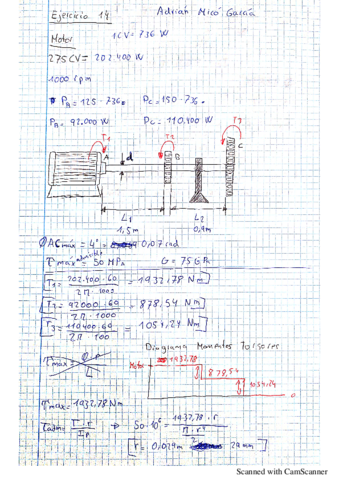 Ejercicio 14
Adrián Micó García
Motor
1CV = 736 W
275CV = 202.400 W
1000 rpm
PB = 125 · 736. PC = 150 · 736.
PB = 92.000 W PC = 110.400 W
T1
T2
T3
A
d
B
C
L1
L2
1,5m
0,9m
ØACmáx = 4° = 0,07 rad
τmáx admisible = 50 MPa G = 75 GPa
T1 = 202.400 · 60 / 2Π · 1000 = 1932,78 Nm
T2 = 92000 · 60 / 2Π · 1000 = 878,54 Nm
T3 = 110400 · 60 / 2Π · 100 = 1054,24 Nm
Diagrama Momentos Torsores
Motor
1932,78
878,54
1054,24
0
τmax
Tmax = 1932,78 Nm
τadm = T · r / Ip ⇒ 50 · 10⁶ = 1932,78 · r / Π · r⁴ / 2
r = 0,029m 29 mm
Scanned with CamScanner